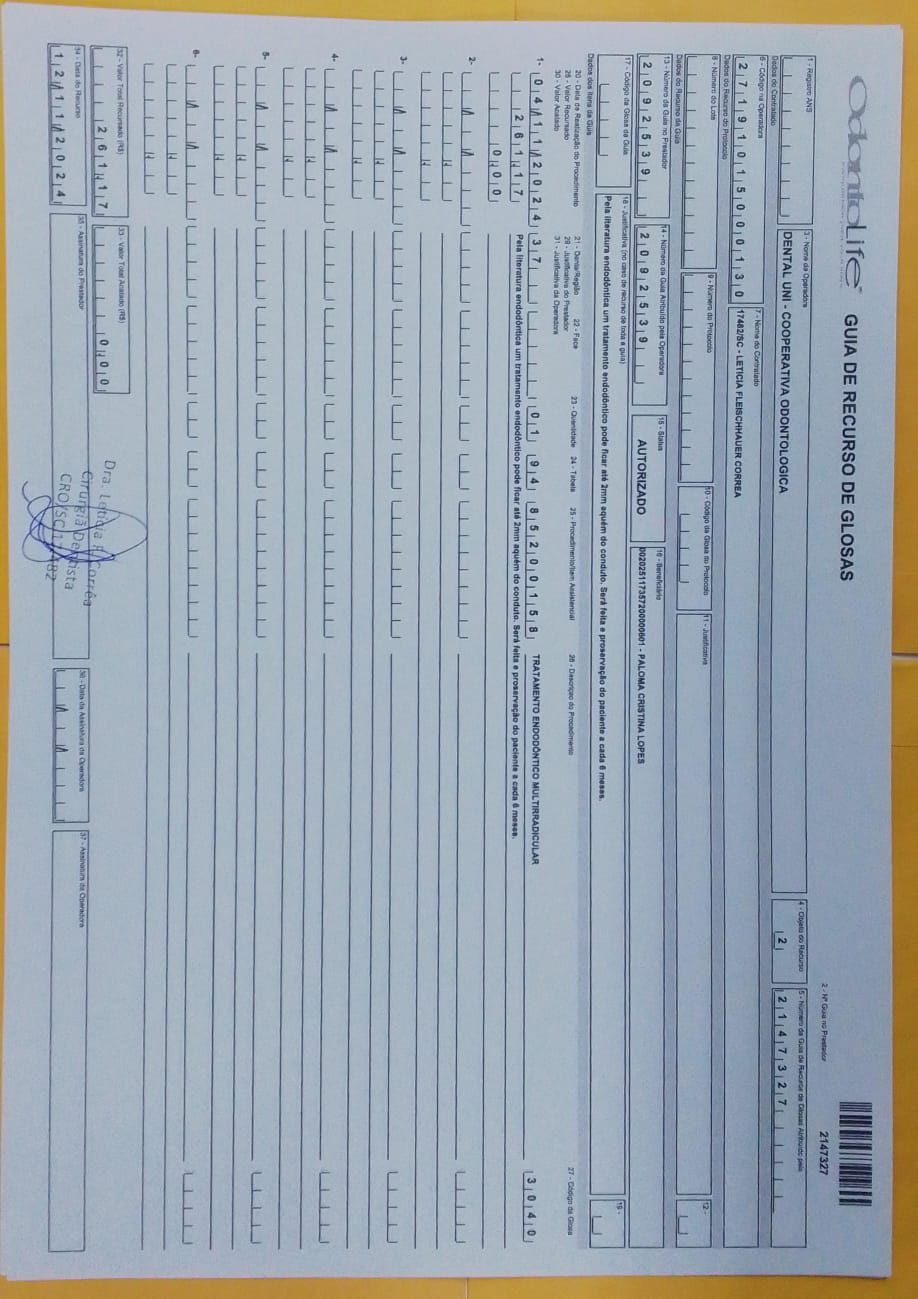 OdontoLife
GUIA DE RECURSO DE GLOSAS
2 - Nº Guia no Prestador 2147327
1 - Registro ANS
3 - Nome da Operadora
DENTAL UNI - COOPERATIVA ODONTOLOGICA
4 - Objeto do Recurso
2
5 - Número da Guia de Recurso de Glosas Atribuído pela
2147327
Dados do Contratado
6 - Código na Operadora
27191015000130
7 - Nome do Contratado
17482/SC - LETICIA FLEISCHHAUER CORREA
Dados do Recurso do Protocolo
8 - Número do Lote
9 - Número do Protocolo
10 - Código da Glosa do Protocolo
11 - Justificativa
12 -
Dados do Recurso da Guia
13 - Número da Guia no Prestador
2092539
14 - Número da Guia Atribuído pela Operadora
2092539
15 - Status
AUTORIZADO
16 - Beneficiário
002025117357200000601 - PALOMA CRISTINA LOPES
17 - Código da Glosa da Guia
18 - Justificativa (no caso de recurso de toda a guia)
Pela literatura endodôntica um tratamento endodôntico pode ficar até 2mm aquém do conduto. Será feita e proservação do paciente a cada 6 meses.
19 -
Dados dos Itens da Guia
20 - Data de Realização do Procedimento 21 - Dente/Região 22 - Face 23 - Quantidade 24 - Tabela 25 - Procedimento/Item Assistencial 26 - Descrição do Procedimento 27 - Código da Glosa
28 - Valor Recursado 29 - Justificativa do Prestador
30 - Valor Acatado 31 - Justificativa da Operadora
1- 04/11/2024 37 01 94 85200158 TRATAMENTO ENDODÔNTICO MULTIRRADICULAR 3040
261,17 Pela literatura endodôntica um tratamento endodôntico pode ficar até 2mm aquém do conduto. Será feita e proservação do paciente a cada 6 meses.
0,00
2-
3-
4-
5-
6-
32 - Valor Total Recursado (R$)
261,17
33 - Valor Total Acatado (R$)
0,00
34 - Data do Recurso
12/11/2024
35 - Assinatura do Prestador
Dra. Letícia F. Corrêa
Cirurgiã Dentista
CRO/SC 17482
36 - Data da Assinatura da Operadora
37 - Assinatura da Operadora